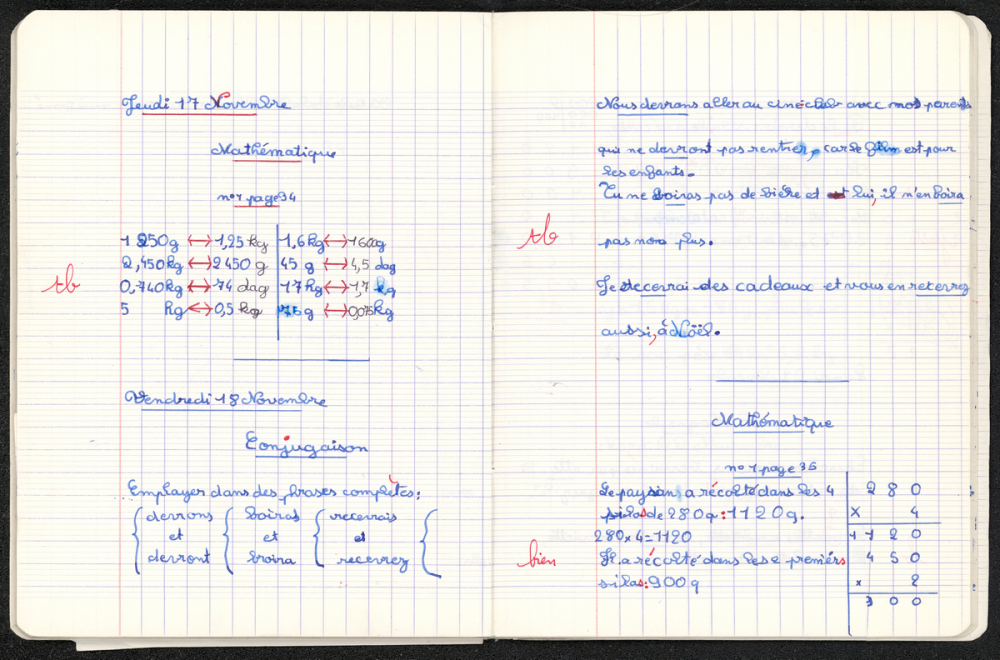 Jeudi 17 Novembre
Mathématique
n°1 page 34
1 250g ↔ 1,25 kg | 1,6 kg ↔ 1600g
2,450kg ↔ 2450 g | 45 g ↔ 4,5 dag
tb
0,740kg ↔ 74 dag | 17 hg ↔ 1,7 kg
5 hg ↔ 0,5 kg | 75 g ↔ 0,075kg
Vendredi 18 Novembre
Conjugaison
Employer dans des phrases complètes :
devrons { boiras { recevrais {
et et et
devront boira recevrez
Nous devrons aller au ciné-club avec mes parents
qui ne devront pas rentrer, car le film est pour
les enfants.
Tu ne boiras pas de bière et lui, il n'en boira
tb
pas non plus.
Je recevrai des cadeaux et vous en recevrez
aussi, à Noël.
Mathématique
n° 1 page 35
Le paysan a récolté dans les 4
silos de 280q : 1120q.
280 x 4 = 1120
bien
Il a récolté dans les 2 premiers
silos : 900q
280
x 4
1120
450
x 2
900